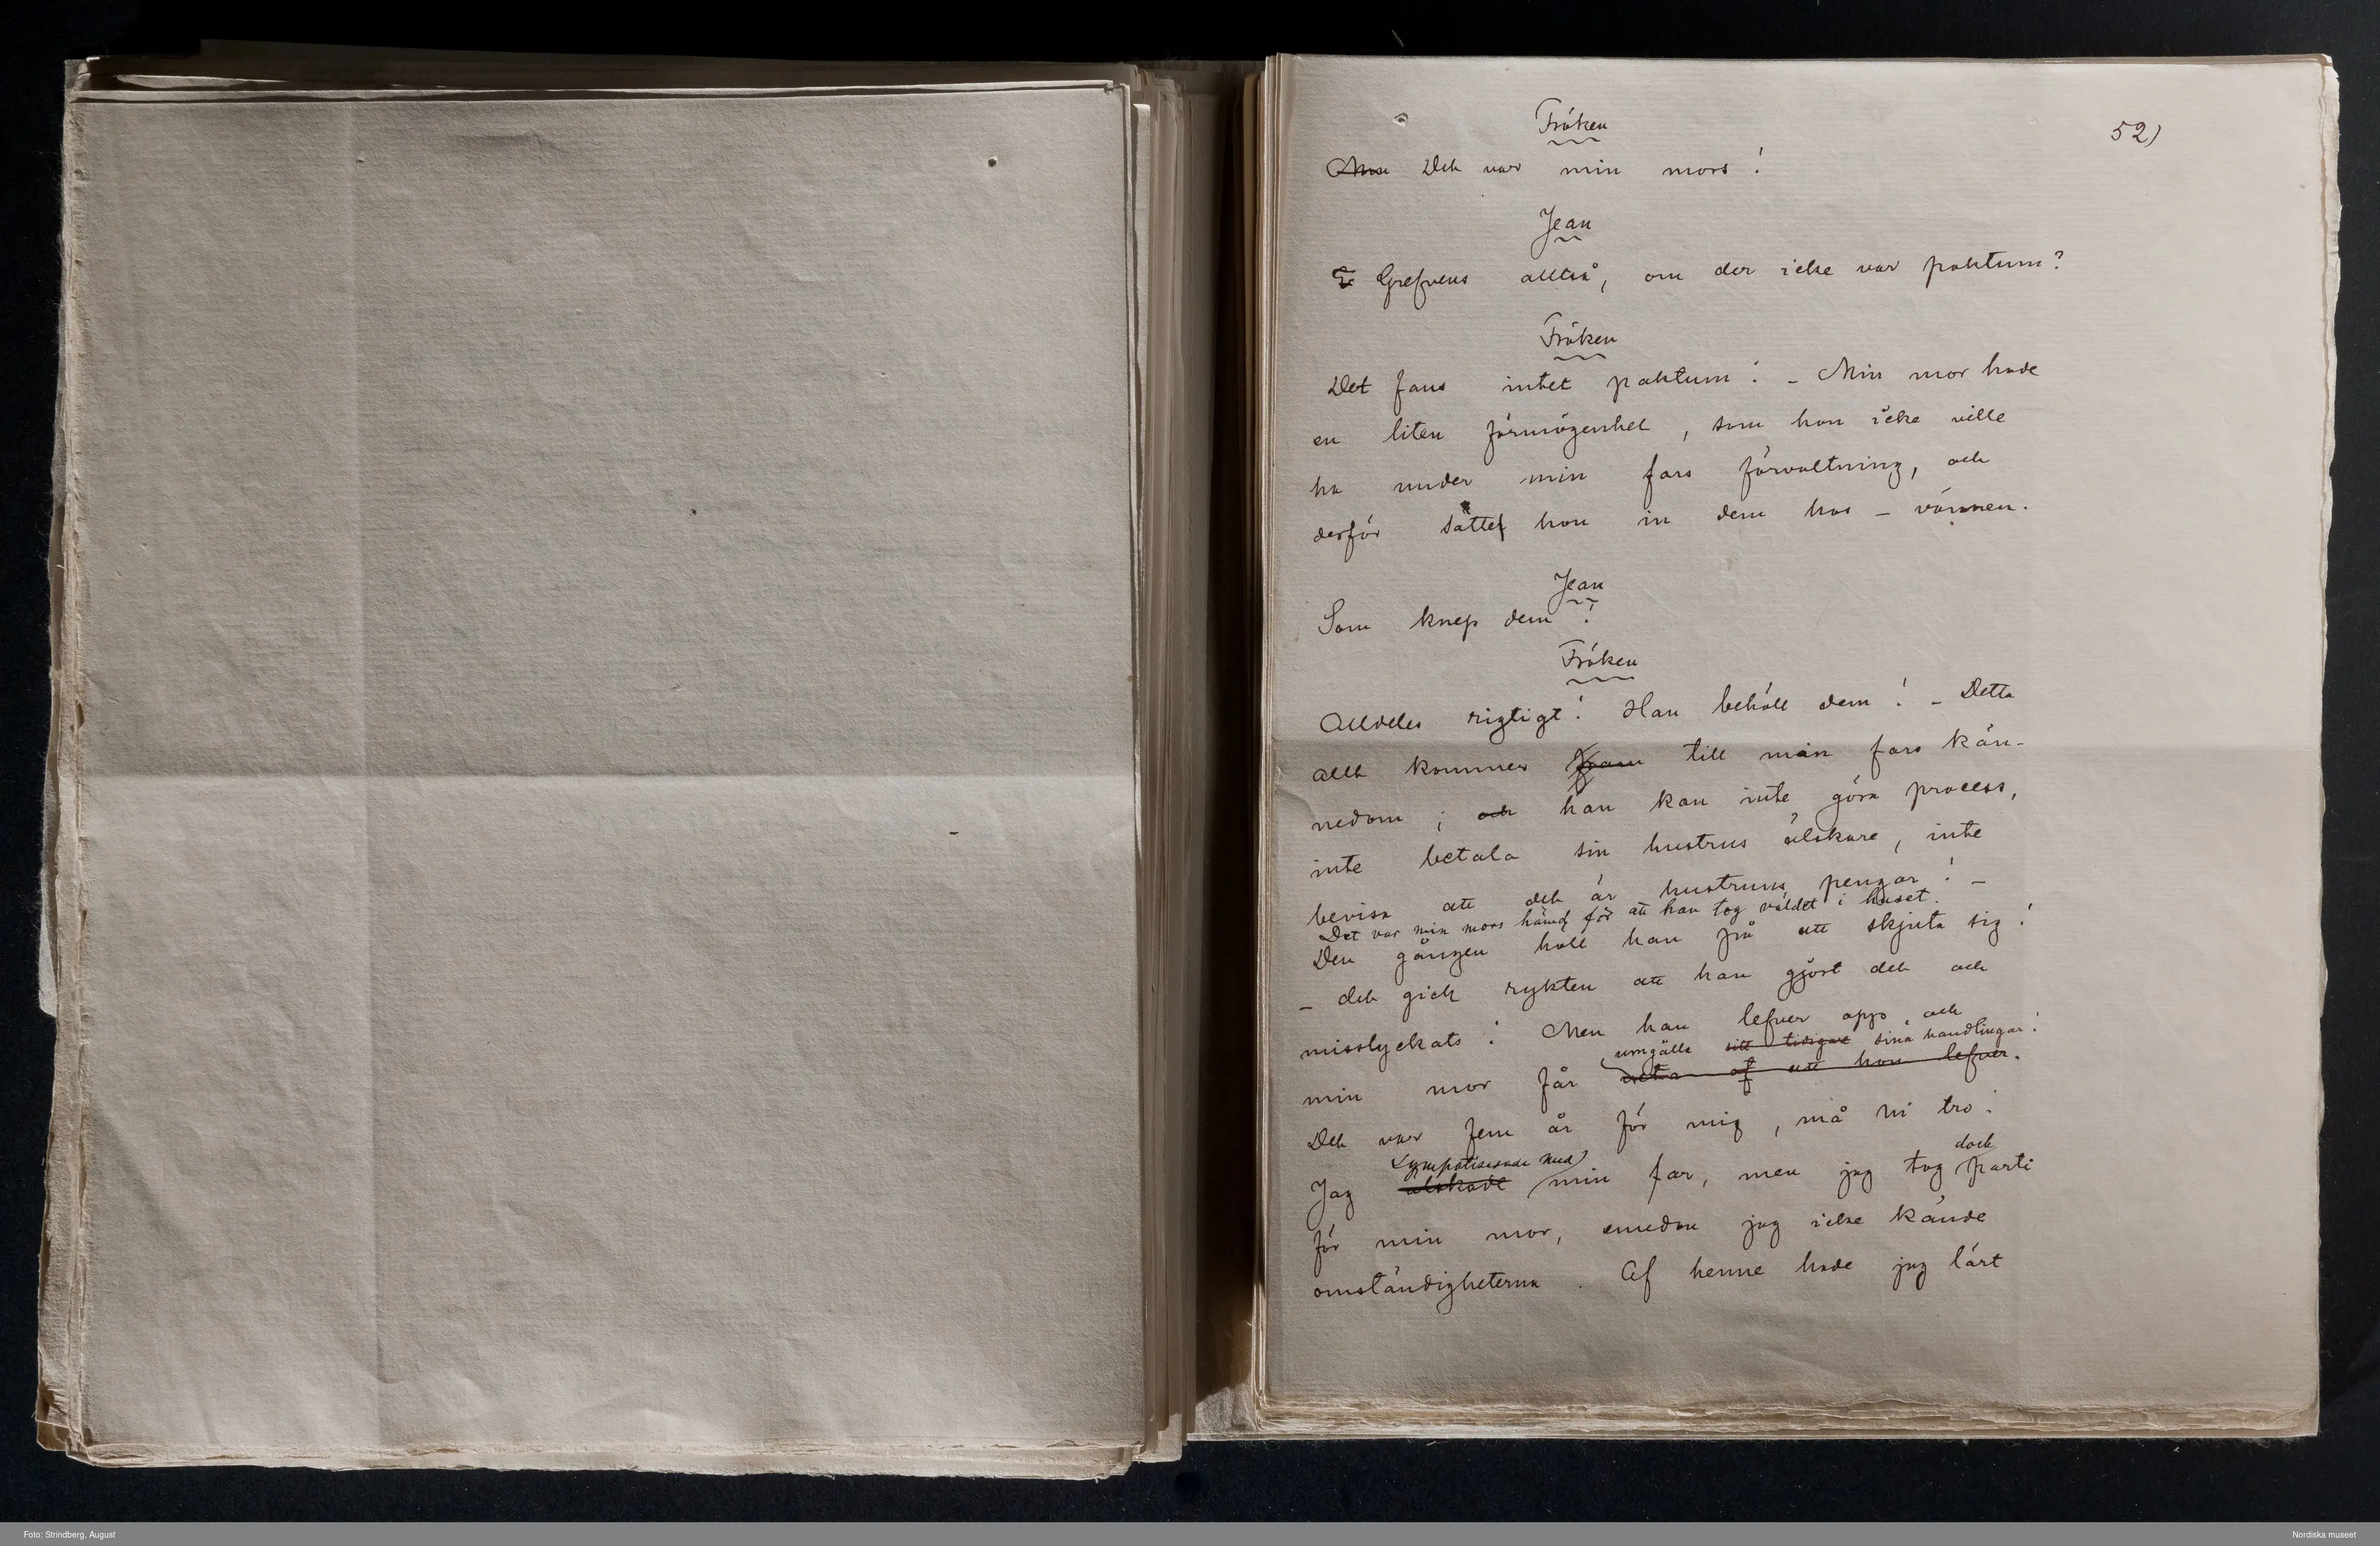 52)
Fröken
Det var min mors!
Jean
Grefvens alltså, om der icke var paktum?
Fröken
Det fans intet paktum! – Min mor hade
en liten förmögenhet, som hon icke ville
ha under min fars förvaltning, och
derför satte hon in dem hos – vännen.
Jean
Som knep dem!
Fröken
Alldeles rigtigt! Han behöll dem! – Detta
allt kommer fram till min fars kän-
nedom; och han kan inte göra process,
inte betala sin hustrus älskare, inte
bevisa att det är hustruns pengar! –
Det var min mors hämd för att han tog väldet i huset.
Den gången höll han på att skjuta sig!
– det gick rykten att han gjort det och
misslyckats! Men han lefver opp, och
umgälla sitt tidigare sina handlingar!
min mor får veta af att hon lefver.
Det var fem år för mig, må ni tro!
Sympatiserade med dock
Jag älskade min far, men jag tog parti
för min mor, emedan jag icke kände
omständigheterna. Af henne hade jag lärt
Foto: Strindberg, August
Nordiska museet